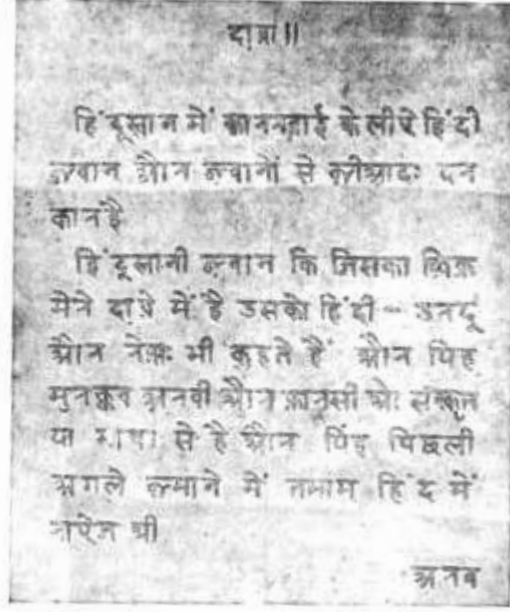 दावा॥
हिंदूसतान में काररवाई के लीये हिंदी
ज़बान और ज़बानों से ज़ीआदः दर
कार है
हिंदूसतानी ज़बान कि जिसका ज़िक्र
मेरे दावे में है उसको हिंदी - उरदू
और रेखतः भी कहते हैं और यिह
मुरक्कब अरबी और फ़ारसी ओ संस्कृत
या भाषा से है और यिह पिछली
अगले ज़माने में तमाम हिंद में
राऐज थी
अरब